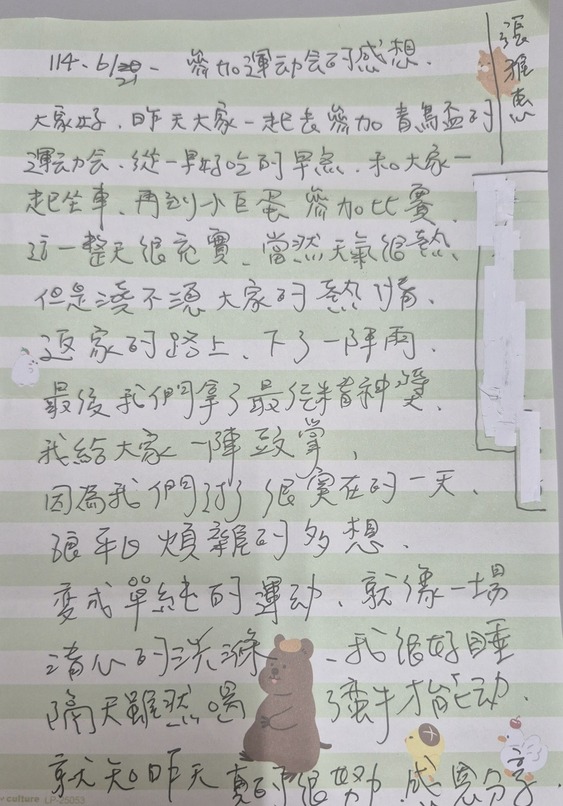 張雅惠
114.6/21. 參加運动会的感想.
大家好.昨天大家一起去參加青鳥盃的
運动会.從一早好吃的早点.和大家一
起坐車.再到小巨蛋參加比賽.
這一整天很充實.當然天氣很熱.
但是澆不湿大家的熱情.
返家的路上.下了一陣雨.
最後我們拿了最佳精神獎.
我給大家一陣鼓掌,
因為我們 很實在的一天.
平日煩雜的多想.
變成單純的運动.就像一場
清心的洗滌.我很好睡
隔天雖然喝了蠻牛才能动.
就知昨天真的很努力 感恩分享.
culture LP-25053